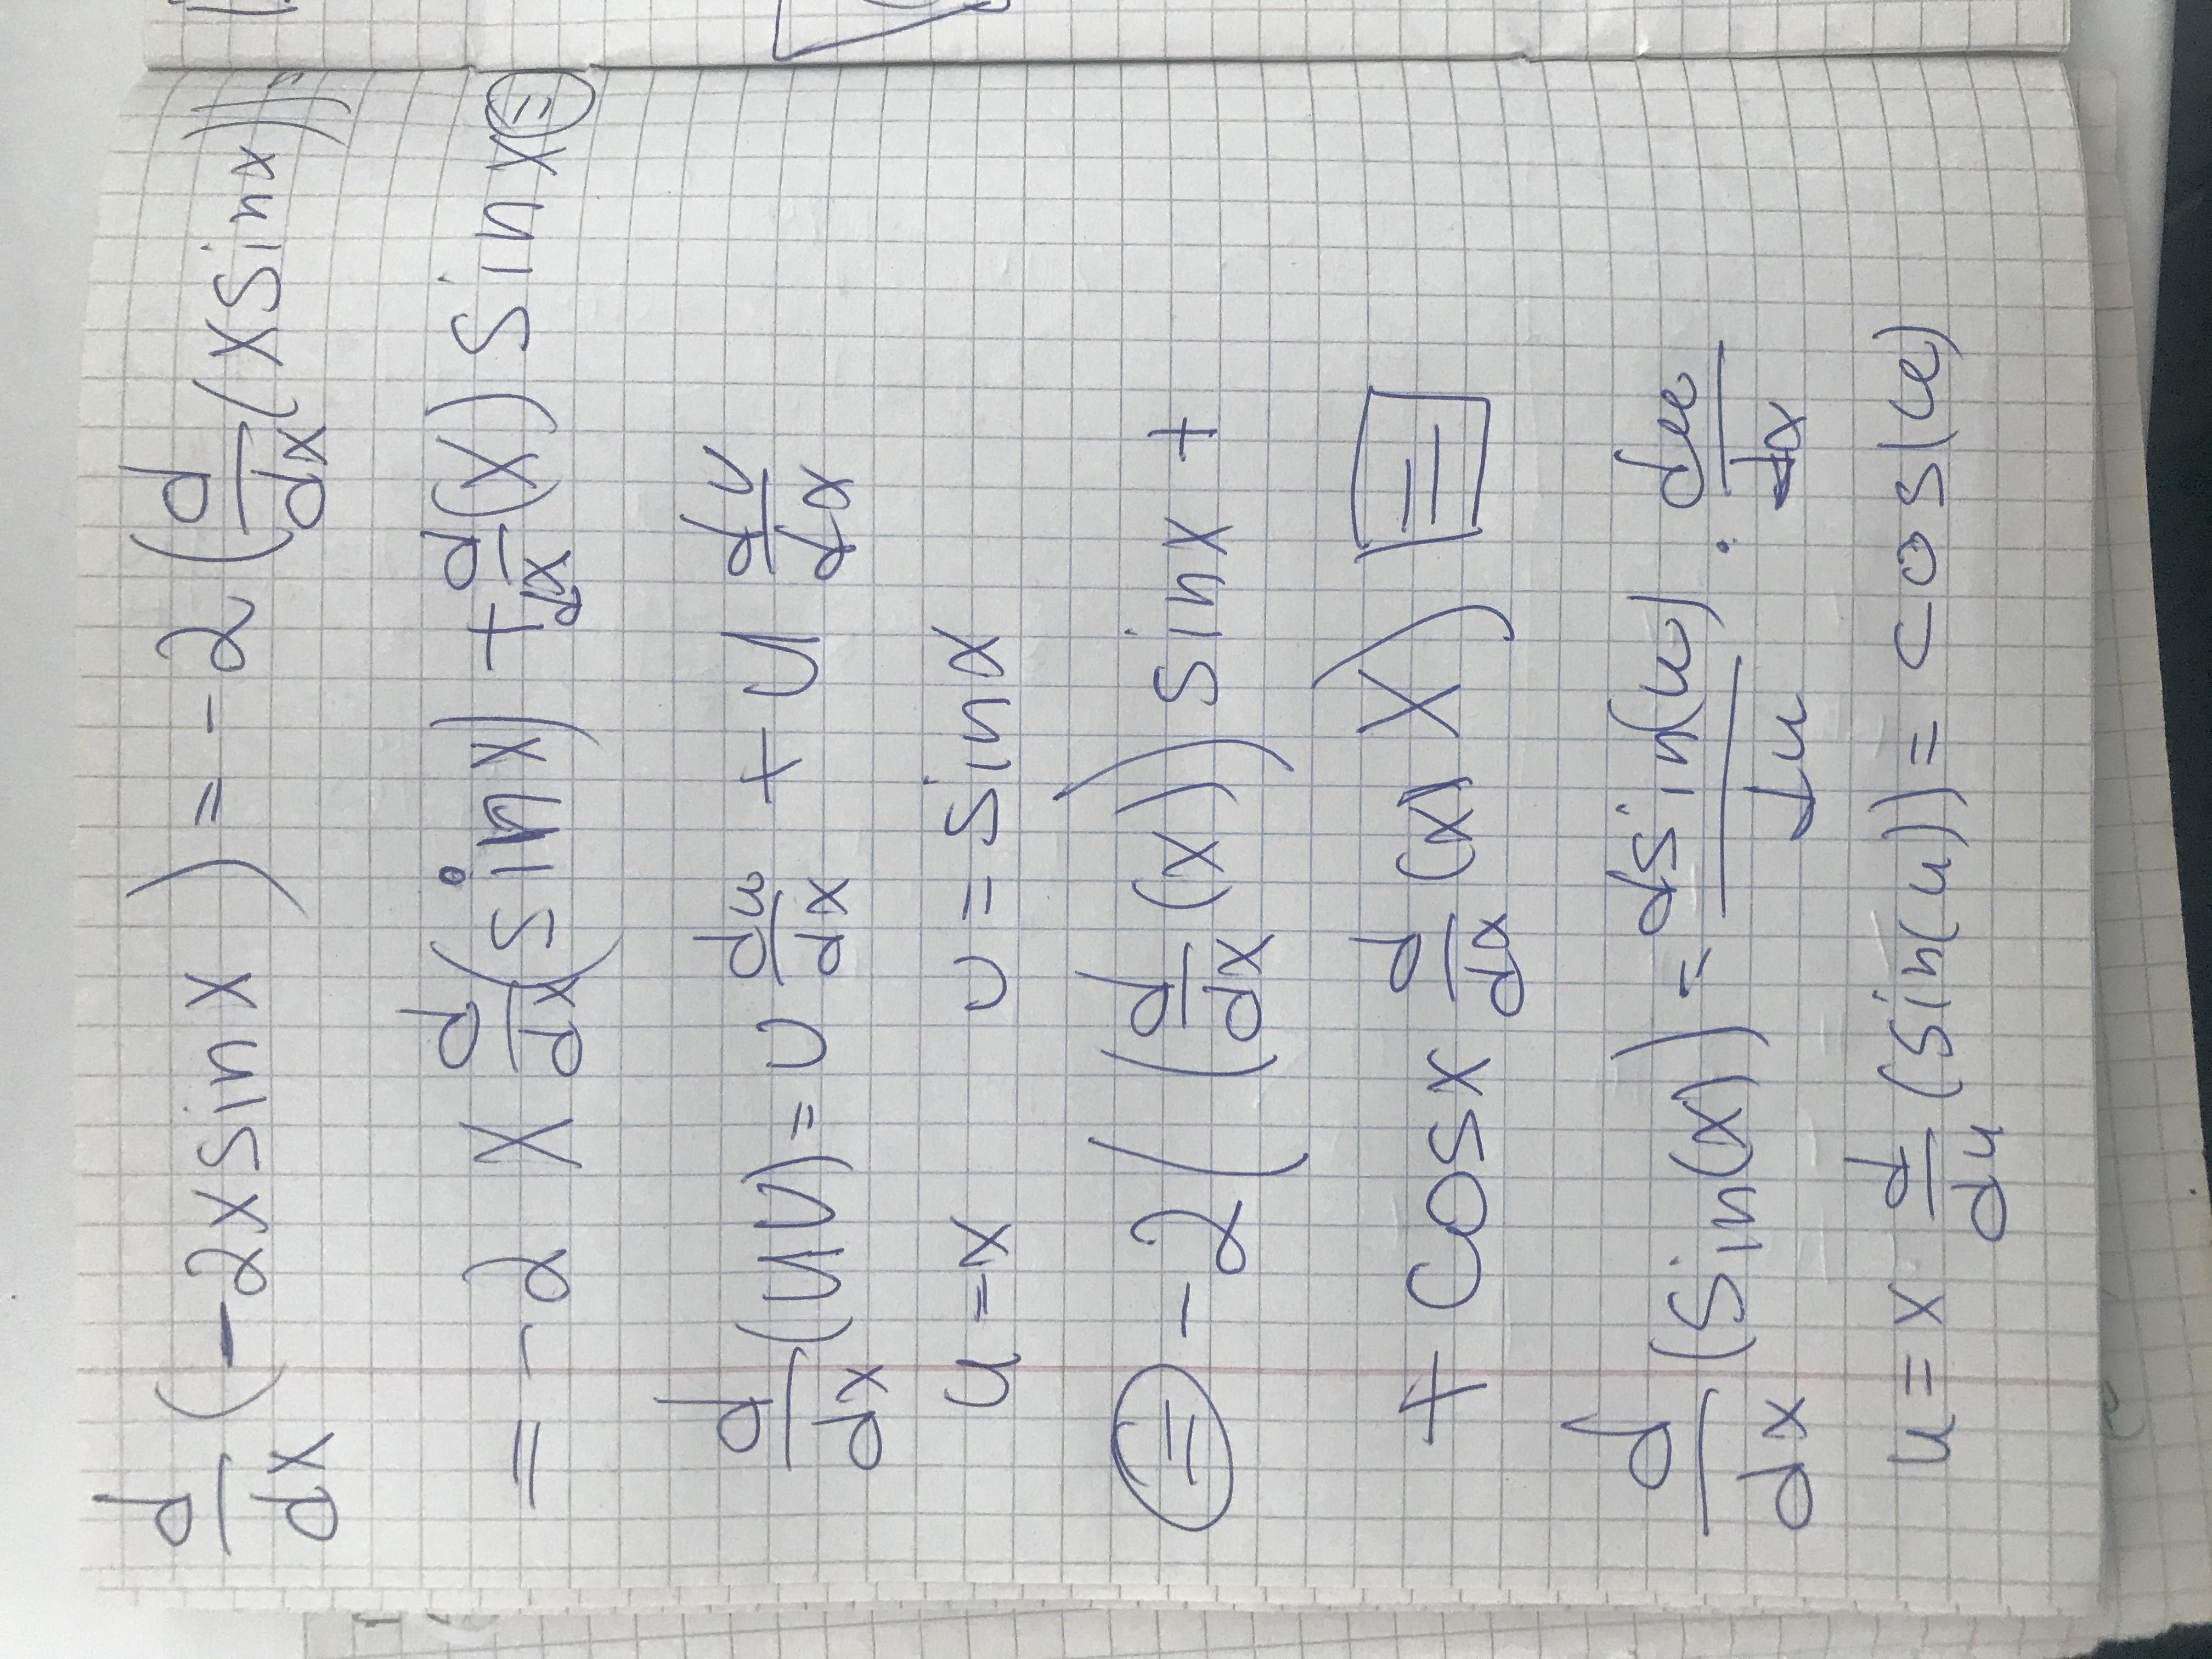 d/dx (-2xsinx) = -2(d/dx(xsinx))=
= -2 x d/dx(sinx) + d/dx(x) sinx =
d/dx(uv) = v du/dx + u dv/dx
u=x v = sinx
= -2((d/dx(x)) sinx +
+ cosx d/dx(x) x) =
d/dx(sin(x)) = dsin(u)/du · du/dx
u=x d/du(sin(u)) = cos(u)